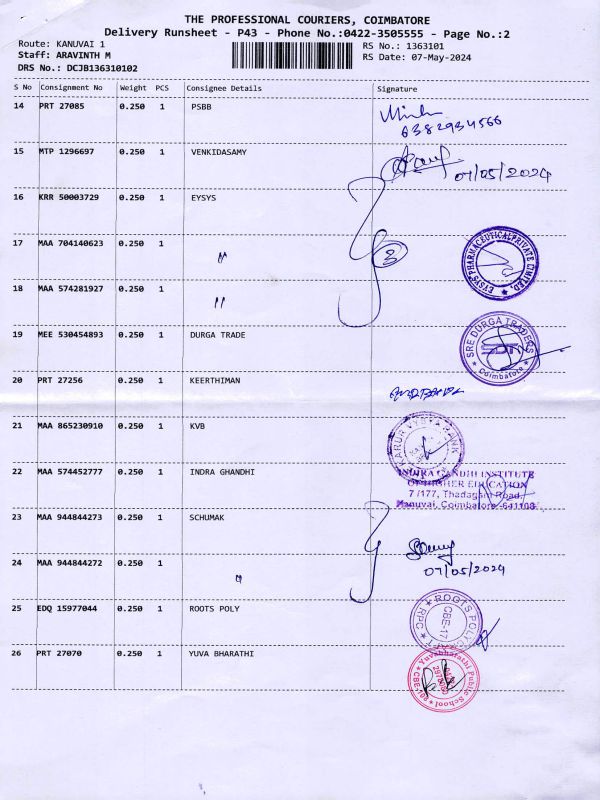 THE PROFESSIONAL COURIERS, COIMBATORE
Delivery Runsheet - P43 - Phone No.:0422-3505555 - Page No.:2
Route: KANUVAI 1
Staff: ARAVINTH M
DRS No.: DCJB136310102
RS No.: 1363101
RS Date: 07-May-2024
S No Consignment No Weight PCS Consignee Details Signature
14 PRT 27085 0.250 1 PSBB
6382934566
15 MTP 1296697 0.250 1 VENKIDASAMY
07/05/2024
16 KRR 50003729 0.250 1 EYSYS
17 MAA 704140623 0.250 1 "
3
EYSYS PHARMACEUTICAL PRIVATE LIMITED
18 MAA 574281927 0.250 1 "
19 MEE 530454893 0.250 1 DURGA TRADE
SRE DURGA TRADERS
Coimbatore
20 PRT 27256 0.250 1 KEERTHIMAN
21 MAA 865230910 0.250 1 KVB
KARUR VYSYA BANK
22 MAA 574452777 0.250 1 INDRA GHANDHI
INDIRA GANDHI INSTITUTE
OF HIGHER EDUCATION
7 /177, Thadagam Road,
Kanuvai, Coimbatore -641108
23 MAA 944844273 0.250 1 SCHUMAK
24 MAA 944844272 0.250 1 "
07/05/2024
25 EDQ 15977044 0.250 1 ROOTS POLY
ROOTS POLY
RPC
CBE-17
26 PRT 27070 0.250 1 YUVA BHARATHI
Yuvabharathi Public School